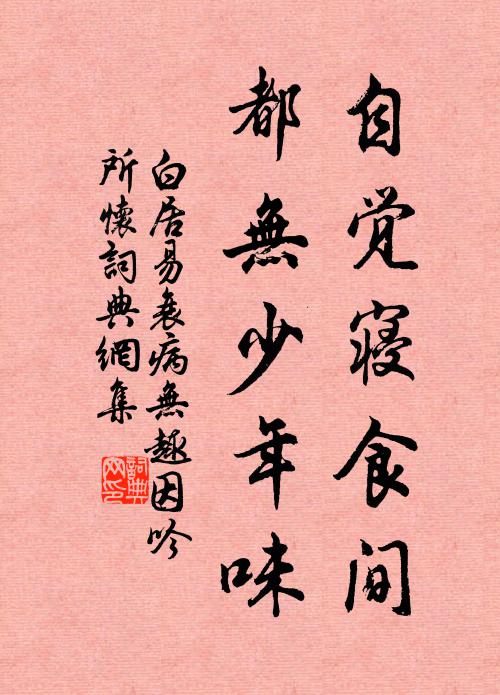 自觉寝食间
都無少年味
白居易衰病無趣因吟
所懷詞典網集
詞典網印